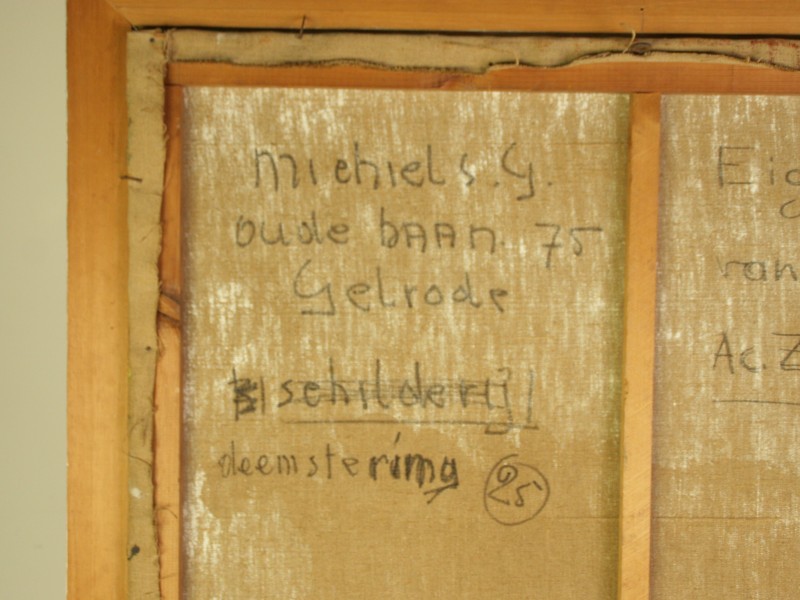 Michiels.G.
oude bAAn. 75
Gelrode
schilderij
deemstering
25
Eig
van
Ac. Z